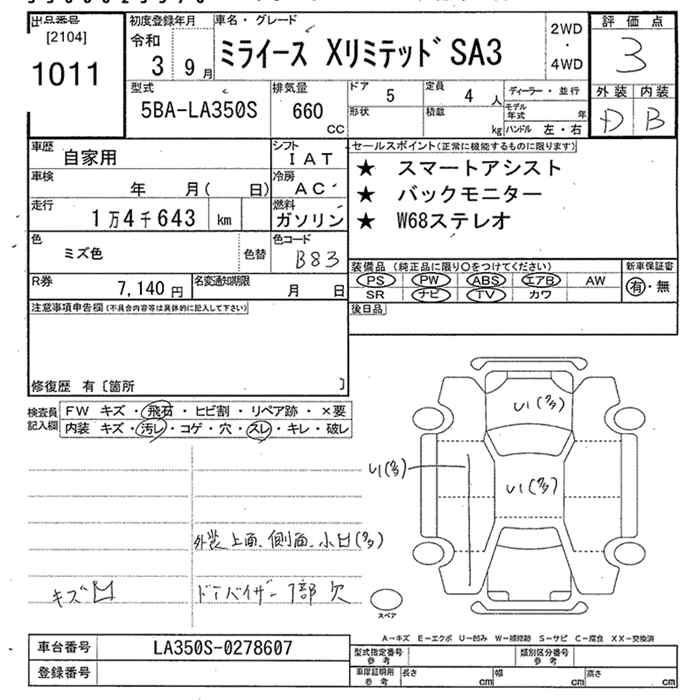 出品番号
[2104]
1011
初度登録年月
令和
3 9月
車名・グレード
ミライース XリミテッドSA3
2WD
・
4WD
評価点
3
外装 内装
D B
型式
5BA-LA350S
排気量
660
cc
ドア
5
定員
4 人
形状
積載
kg
ディーラー・並行
モデル年式 年
ハンドル 左・右
車歴
自家用
シフト
IAT
車検
年 月( 日)
冷房
AC
走行
1万4千643 km
燃料
ガソリン
色
ミズ色
色替
色コード
B83
R券
7,140円
名変通知期限
月 日
セールスポイント(正常に機能するものに限ります)
★ スマートアシスト
★ バックモニター
★ W68ステレオ
装備品 (純正品に限り○をつけてください)
PS PW ABS エアB AW
SR ナビ TV カワ
新車保証書
有・無
後日品
注意事項申告欄(不具合内容等は具体的に記入して下さい)
修復歴 有〔箇所 〕
検査員記入欄
FW キズ・飛石・ヒビ割・リペア跡・×要
内装 キズ・汚レ・コゲ・穴・スレ・キレ・破レ
U1(多)
U1(多)
U1(多)
外装 上面、側面、小凹(多)
キズ
ドアバイザー1部欠
スペア
A-キズ E-エクボ U-凹み W-補修跡 S-サビ C-腐食 XX-交換済
車台番号
LA350S-0278607
登録番号
型式指定番号
参考
類別区分番号
参考
車庫証明用
参考
長さ cm
幅 cm
高さ cm